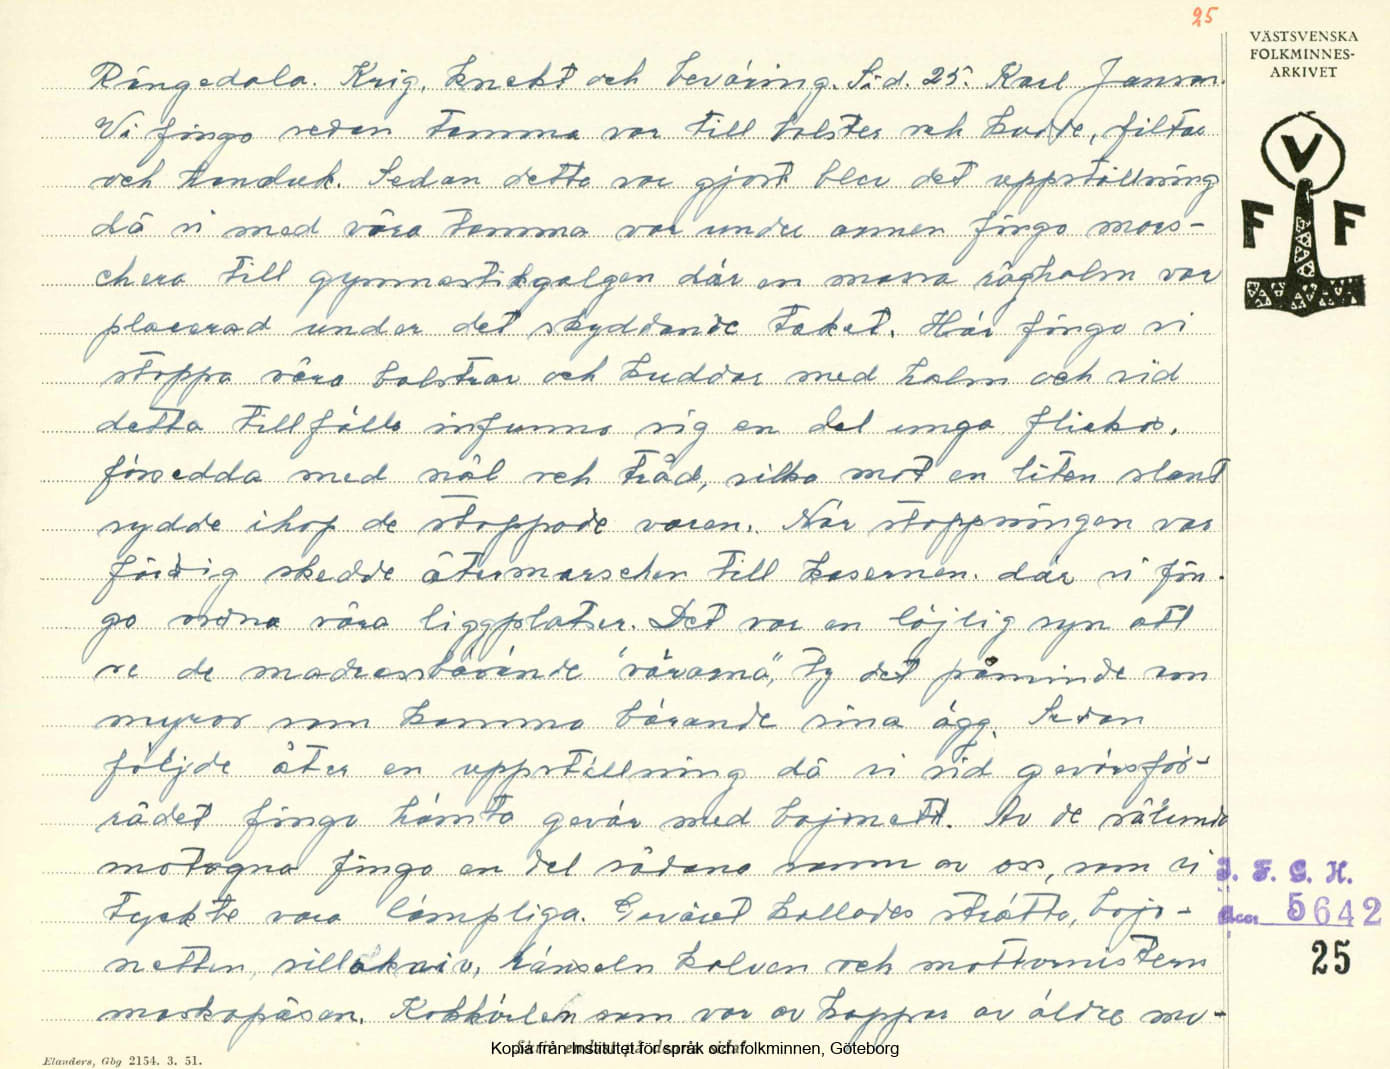 25
VÄSTSVENSKA
FOLKMINNES-
ARKIVET
V
F F
Rångedala. Krig, knekt och beväring. Sid. 25. Karl Janson.
Vi fingo sedan tomma var till bolster och kudde, filtar
och handuk. Sedan detta var gjort blev det uppställning
då vi med våra tomma var under armen fingo mars-
chera till gymnastikgalgen där en massa råghalm var
placerad under det skyddande taket. Här fingo vi
stoppa våra bolstrar och kuddar med halm och vid
detta tillfälle infunno sig en del unga flickor,
försedda med nål och tråd, vilka mot en liten slant
sydde ihop de stoppade varen. När stoppningen var
färdig skedde återmarschen till kasernen där vi fin-
go ordna våra liggplatser. Det var en löjlig syn att
se de madrassbärande "vårarna", ty det påminde om
myror som kommo bärande sina ägg. Sedan
följde åter en uppställning då vi vid gevärsför-
rådet fingo hämta gevär med bajonett. Av de sålunda
mottagna fingo en del sådana namn av oss, som vi
tyckte vara lämpliga. Geväret kallades stråtta, bajo-
netten, sillakniv, hänseln kolven och mattornistern
maskapåsen. Kokkärlen som var av koppar av äldre mo-
I. F. G. H.
Acc. 5642
25
Elanders, Gbg 2154. 3. 51.
Kopia från Institutet för språk och folkminnen, Göteborg